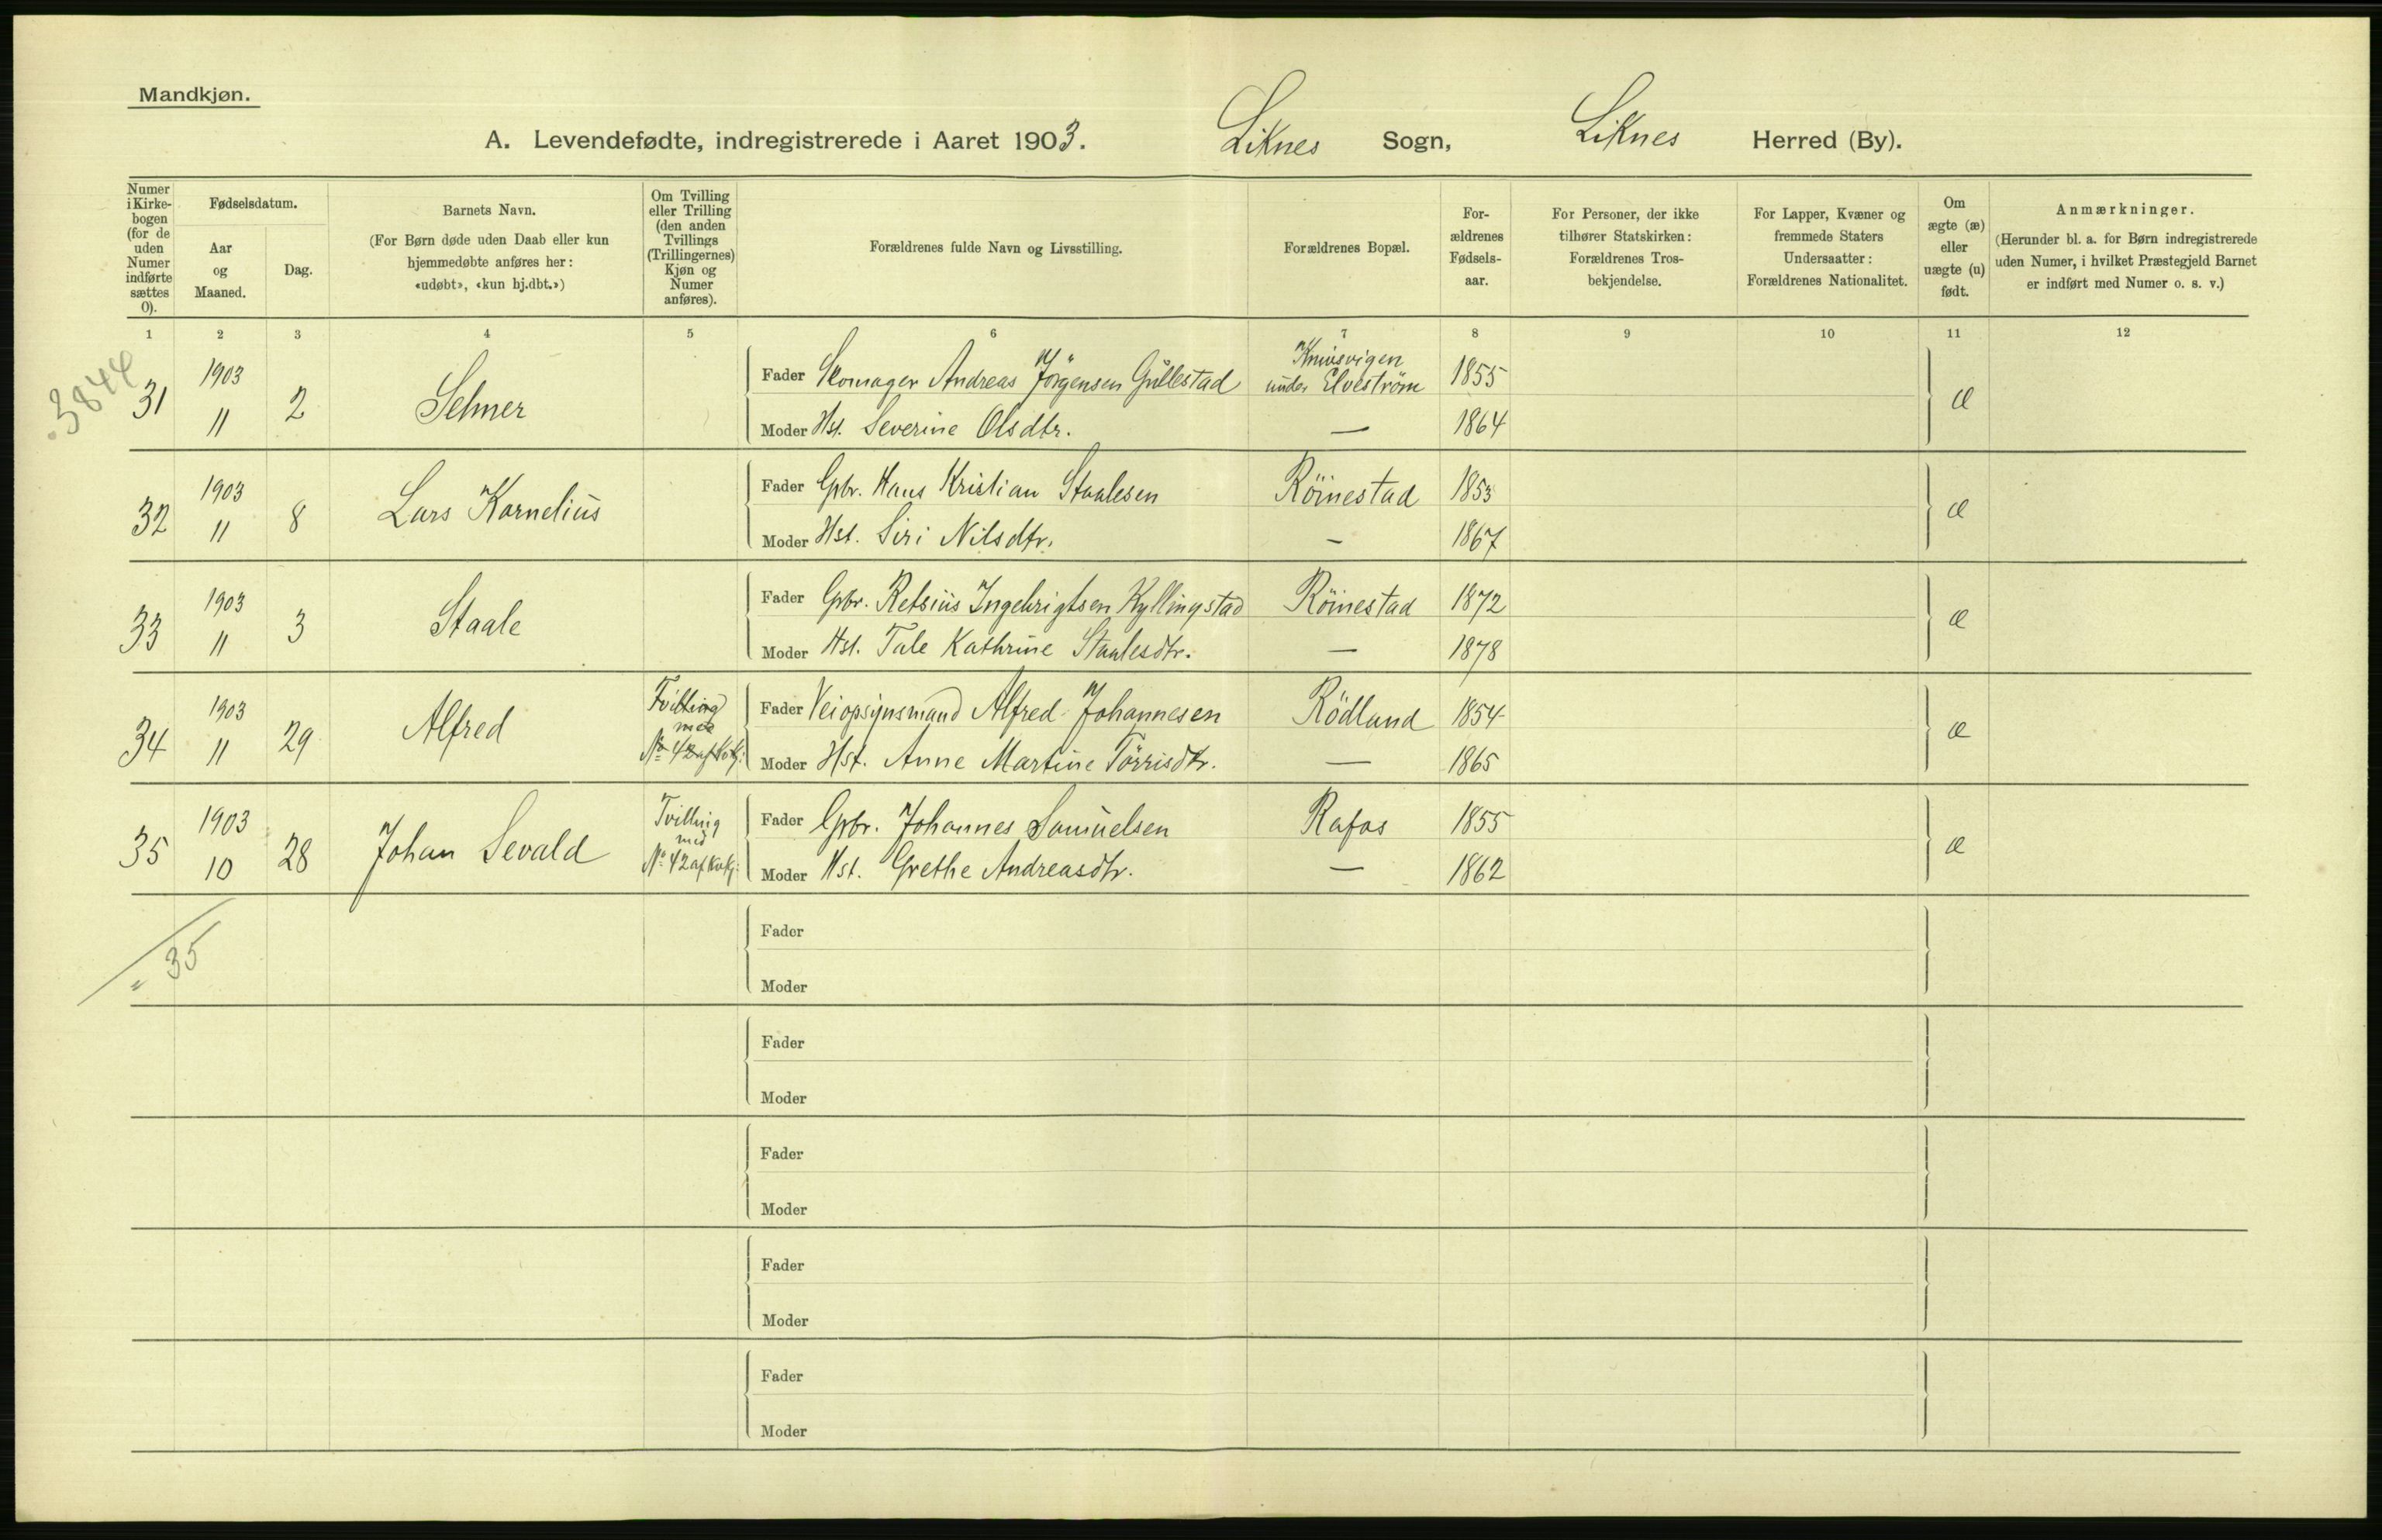 Mandkjøn.
A. Levendefødte, indregistrerede i Aaret 1903. Liknes Sogn, Liknes Herred (By).
Numer i Kirke-bogen (for de uden Numer indførte sættes 0).
Fødselsdatum.
Aar og Maaned.
Dag.
Barnets Navn.
(For Børn døde uden Daab eller kun
hjemmedøbte anføres her:
«udøbt», «kun hj.dbt.»)
Om Tvilling
eller Trilling
(den anden
Tvillings
(Trillingernes)
Kjøn og
Numer
anføres).
Forældrenes fulde Navn og Livsstilling.
Forældrenes Bopæl.
For-
ældrenes
Fødsels-
aar.
For Personer, der ikke
tilhører Statskirken:
Forældrenes Tros-
bekjendelse.
For Lapper, Kvæner og
fremmede Staters
Undersaatter:
Forældrenes Nationalitet.
Om
ægte (æ)
eller
uægte (u)
født.
Anmærkninger.
(Herunder bl. a. for Børn indregistrerede
uden Numer, i hvilket Præstegjeld Barnet
er indført med Numer o. s. v.)
1 2 3 4 5 6 7 8 9 10 11 12
3844
31 1903 11 2 Selmer
Fader Skomager Andreas Jörgensen Gullestad under Elveström 1855 æ
Moder Hst. Severine Olsdtr. — 1864
32 1903 11 8 Lars Kornelius
Fader Gbr. Hans Kristian Staalesen Röinestad 1853 æ
Moder Hst. Siri Nilsdtr. — 1867
33 1903 11 3 Staale
Fader Gbr. Retsius Ingebrigtsen Kyllingstad Röinestad 1872 æ
Moder Hst. Tale Kathrine Staalesdtr. — 1878
34 1903 11 29 Alfred Tvilling med No 42 af Kvkj:
Fader Veiopsynsmand Alfred Johannesen Rödland 1854 æ
Moder Hst. Anne Martine Törrisdtr. — 1865
35 1903 10 28 Johan Sevald Tvilling med No 42 af Kvkj:
Fader Gbr. Johannes Samuelsen Rafos 1855 æ
Moder Hst. Grethe Andreasdtr. — 1862
" 35
Fader
Moder
Fader
Moder
Fader
Moder
Fader
Moder
Fader
Moder